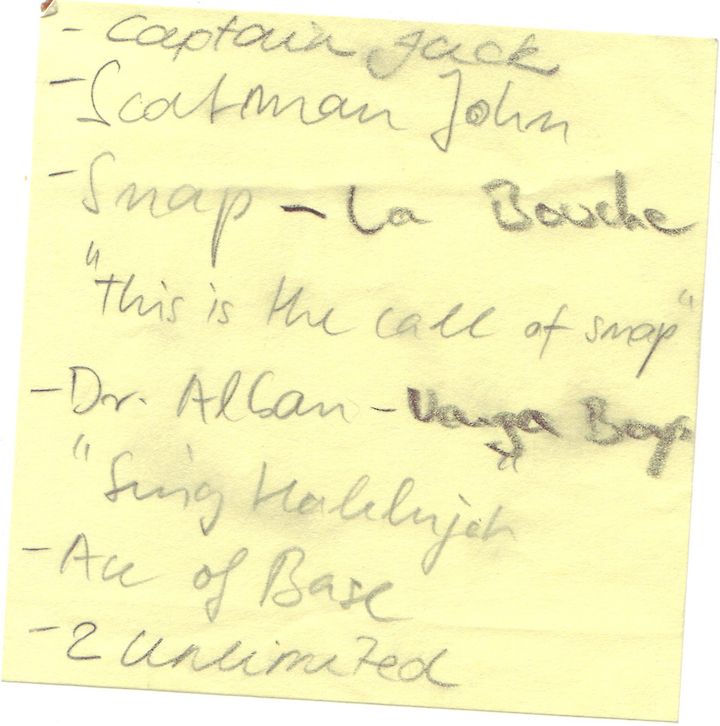 - Captain Jack
- Scatman John
- Snap - La Bouche
"This is the call of snap"
- Dr. Alban - Venga Boys
"Sing Halelujah"
- Ace of Base
- 2 unlimited